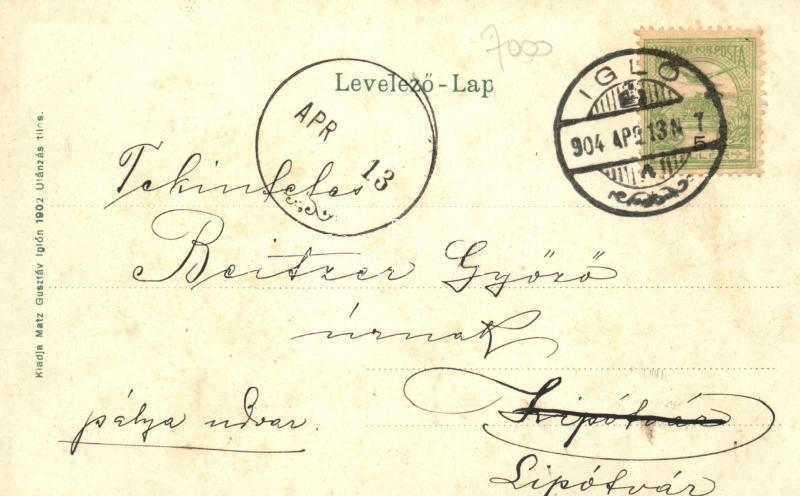 7000
MAGYAR KIR. POSTA
Levelező-Lap
IGLÓ
904 APR 13 N 7
5
A
APR 13
Tekintetes
Beitzer Győző
úrnak
pálya udvar.
Lipótvár
Lipótvár
Kiadja Matz Gusztáv Iglón 1902 Utánzás tilos.